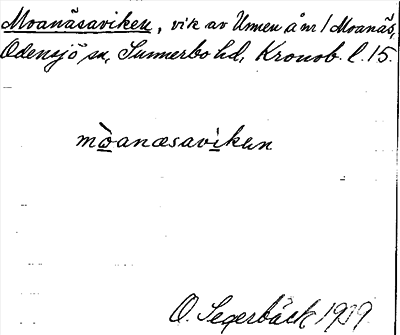 Moanäsaviken, vik av Unnen å nr 1 Moanäs,
Odensjö sn, Sunnerbo hd, Kronob. l. 15.
mòanæsaviken
O. Segerbäck 1939.